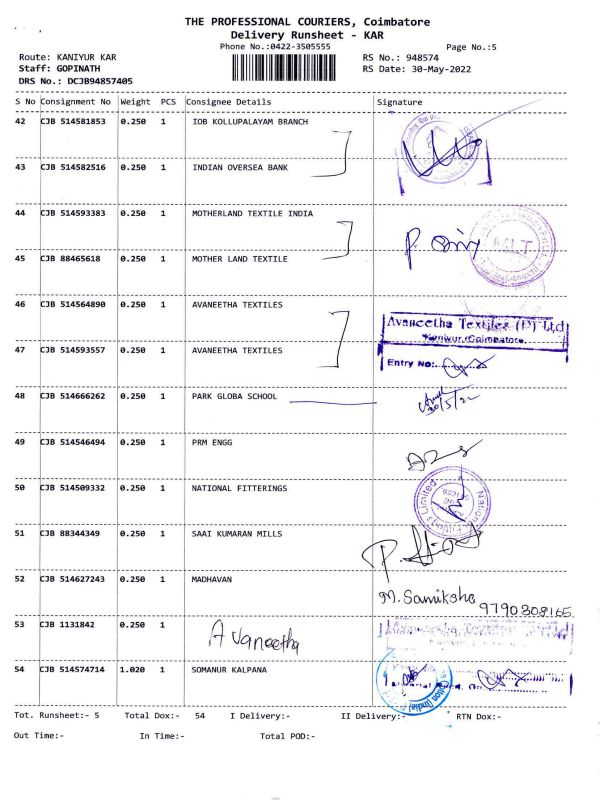 THE PROFESSIONAL COURIERS, Coimbatore
Delivery Runsheet - KAR
Phone No.:0422-3505555 Page No.:5
Route: KANIYUR KAR RS No.: 948574
Staff: GOPINATH RS Date: 30-May-2022
DRS No.: DCJB94857405
S No Consignment No Weight PCS Consignee Details Signature
42 CJB 514581853 0.250 1 IOB KOLLUPALAYAM BRANCH
43 CJB 514582516 0.250 1 INDIAN OVERSEA BANK
44 CJB 514593383 0.250 1 MOTHERLAND TEXTILE INDIA
M.L.T
45 CJB 88465618 0.250 1 MOTHER LAND TEXTILE
46 CJB 514564890 0.250 1 AVANEETHA TEXTILES
Avaneetha Textiles (P) Ltd
Kaniyur, Coimbatore.
47 CJB 514593557 0.250 1 AVANEETHA TEXTILES
Entry No:
48 CJB 514666262 0.250 1 PARK GLOBA SCHOOL
30/5/22
49 CJB 514546494 0.250 1 PRM ENGG
50 CJB 514509332 0.250 1 NATIONAL FITTERINGS
51 CJB 88344349 0.250 1 SAAI KUMARAN MILLS
52 CJB 514627243 0.250 1 MADHAVAN
M. Samiksha
9790308165
53 CJB 1131842 0.250 1
Avaneetha
54 CJB 514574714 1.020 1 SOMANUR KALPANA
Tot. Runsheet:- 5 Total Dox:- 54 I Delivery:- II Delivery:- RTN Dox:-
Out Time:- In Time:- Total POD:-